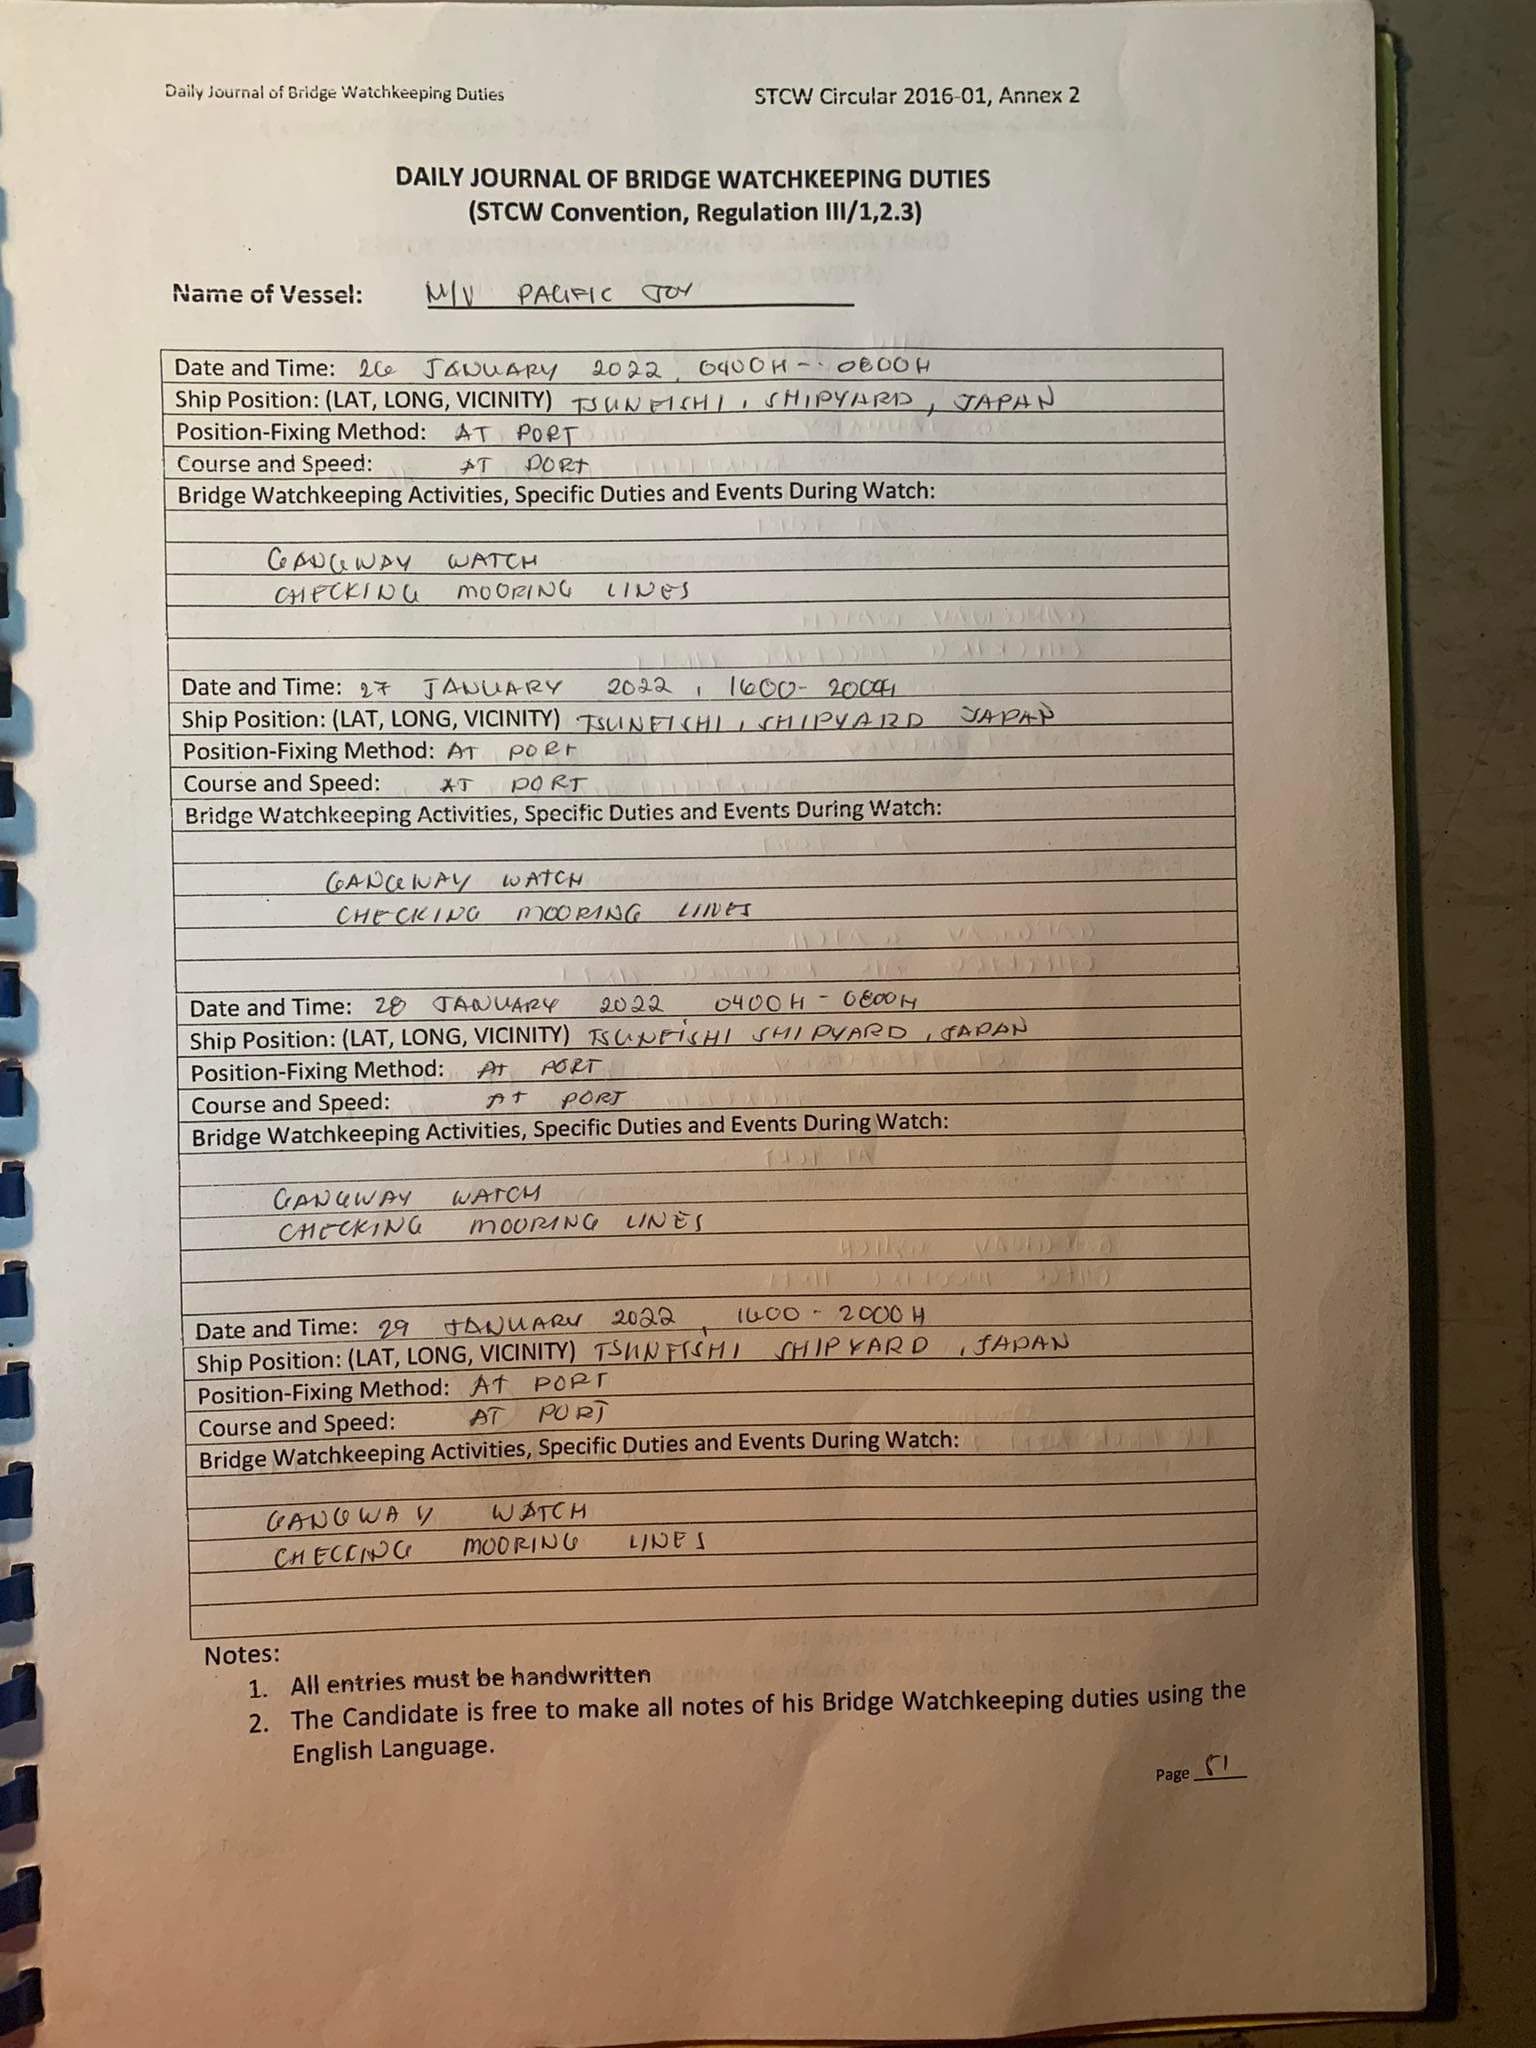 Daily Journal of Bridge Watchkeeping Duties STCW Circular 2016-01, Annex 2
DAILY JOURNAL OF BRIDGE WATCHKEEPING DUTIES
(STCW Convention, Regulation III/1,2.3)
Name of Vessel: M/V PACIFIC JOY
Date and Time: 26 JANUARY 2022, 0400H - 0800H
Ship Position: (LAT, LONG, VICINITY) TSUNEISHI, SHIPYARD, JAPAN
Position-Fixing Method: AT PORT
Course and Speed: AT PORT
Bridge Watchkeeping Activities, Specific Duties and Events During Watch:
GANGWAY WATCH
CHECKING MOORING LINES
Date and Time: 27 JANUARY 2022, 1600-2000H
Ship Position: (LAT, LONG, VICINITY) TSUNEISHI, SHIPYARD JAPAN
Position-Fixing Method: AT PORT
Course and Speed: AT PORT
Bridge Watchkeeping Activities, Specific Duties and Events During Watch:
GANGWAY WATCH
CHECKING MOORING LINES
Date and Time: 28 JANUARY 2022, 0400H - 0800H
Ship Position: (LAT, LONG, VICINITY) TSUNEISHI SHIPYARD, JAPAN
Position-Fixing Method: AT PORT
Course and Speed: AT PORT
Bridge Watchkeeping Activities, Specific Duties and Events During Watch:
GANGWAY WATCH
CHECKING MOORING LINES
Date and Time: 29 JANUARY 2022, 1600 - 2000H
Ship Position: (LAT, LONG, VICINITY) TSUNEISHI SHIPYARD, JAPAN
Position-Fixing Method: AT PORT
Course and Speed: AT PORT
Bridge Watchkeeping Activities, Specific Duties and Events During Watch:
GANGWAY WATCH
CHECKING MOORING LINES
Notes:
1. All entries must be handwritten
2. The Candidate is free to make all notes of his Bridge Watchkeeping duties using the
English Language.
Page 51